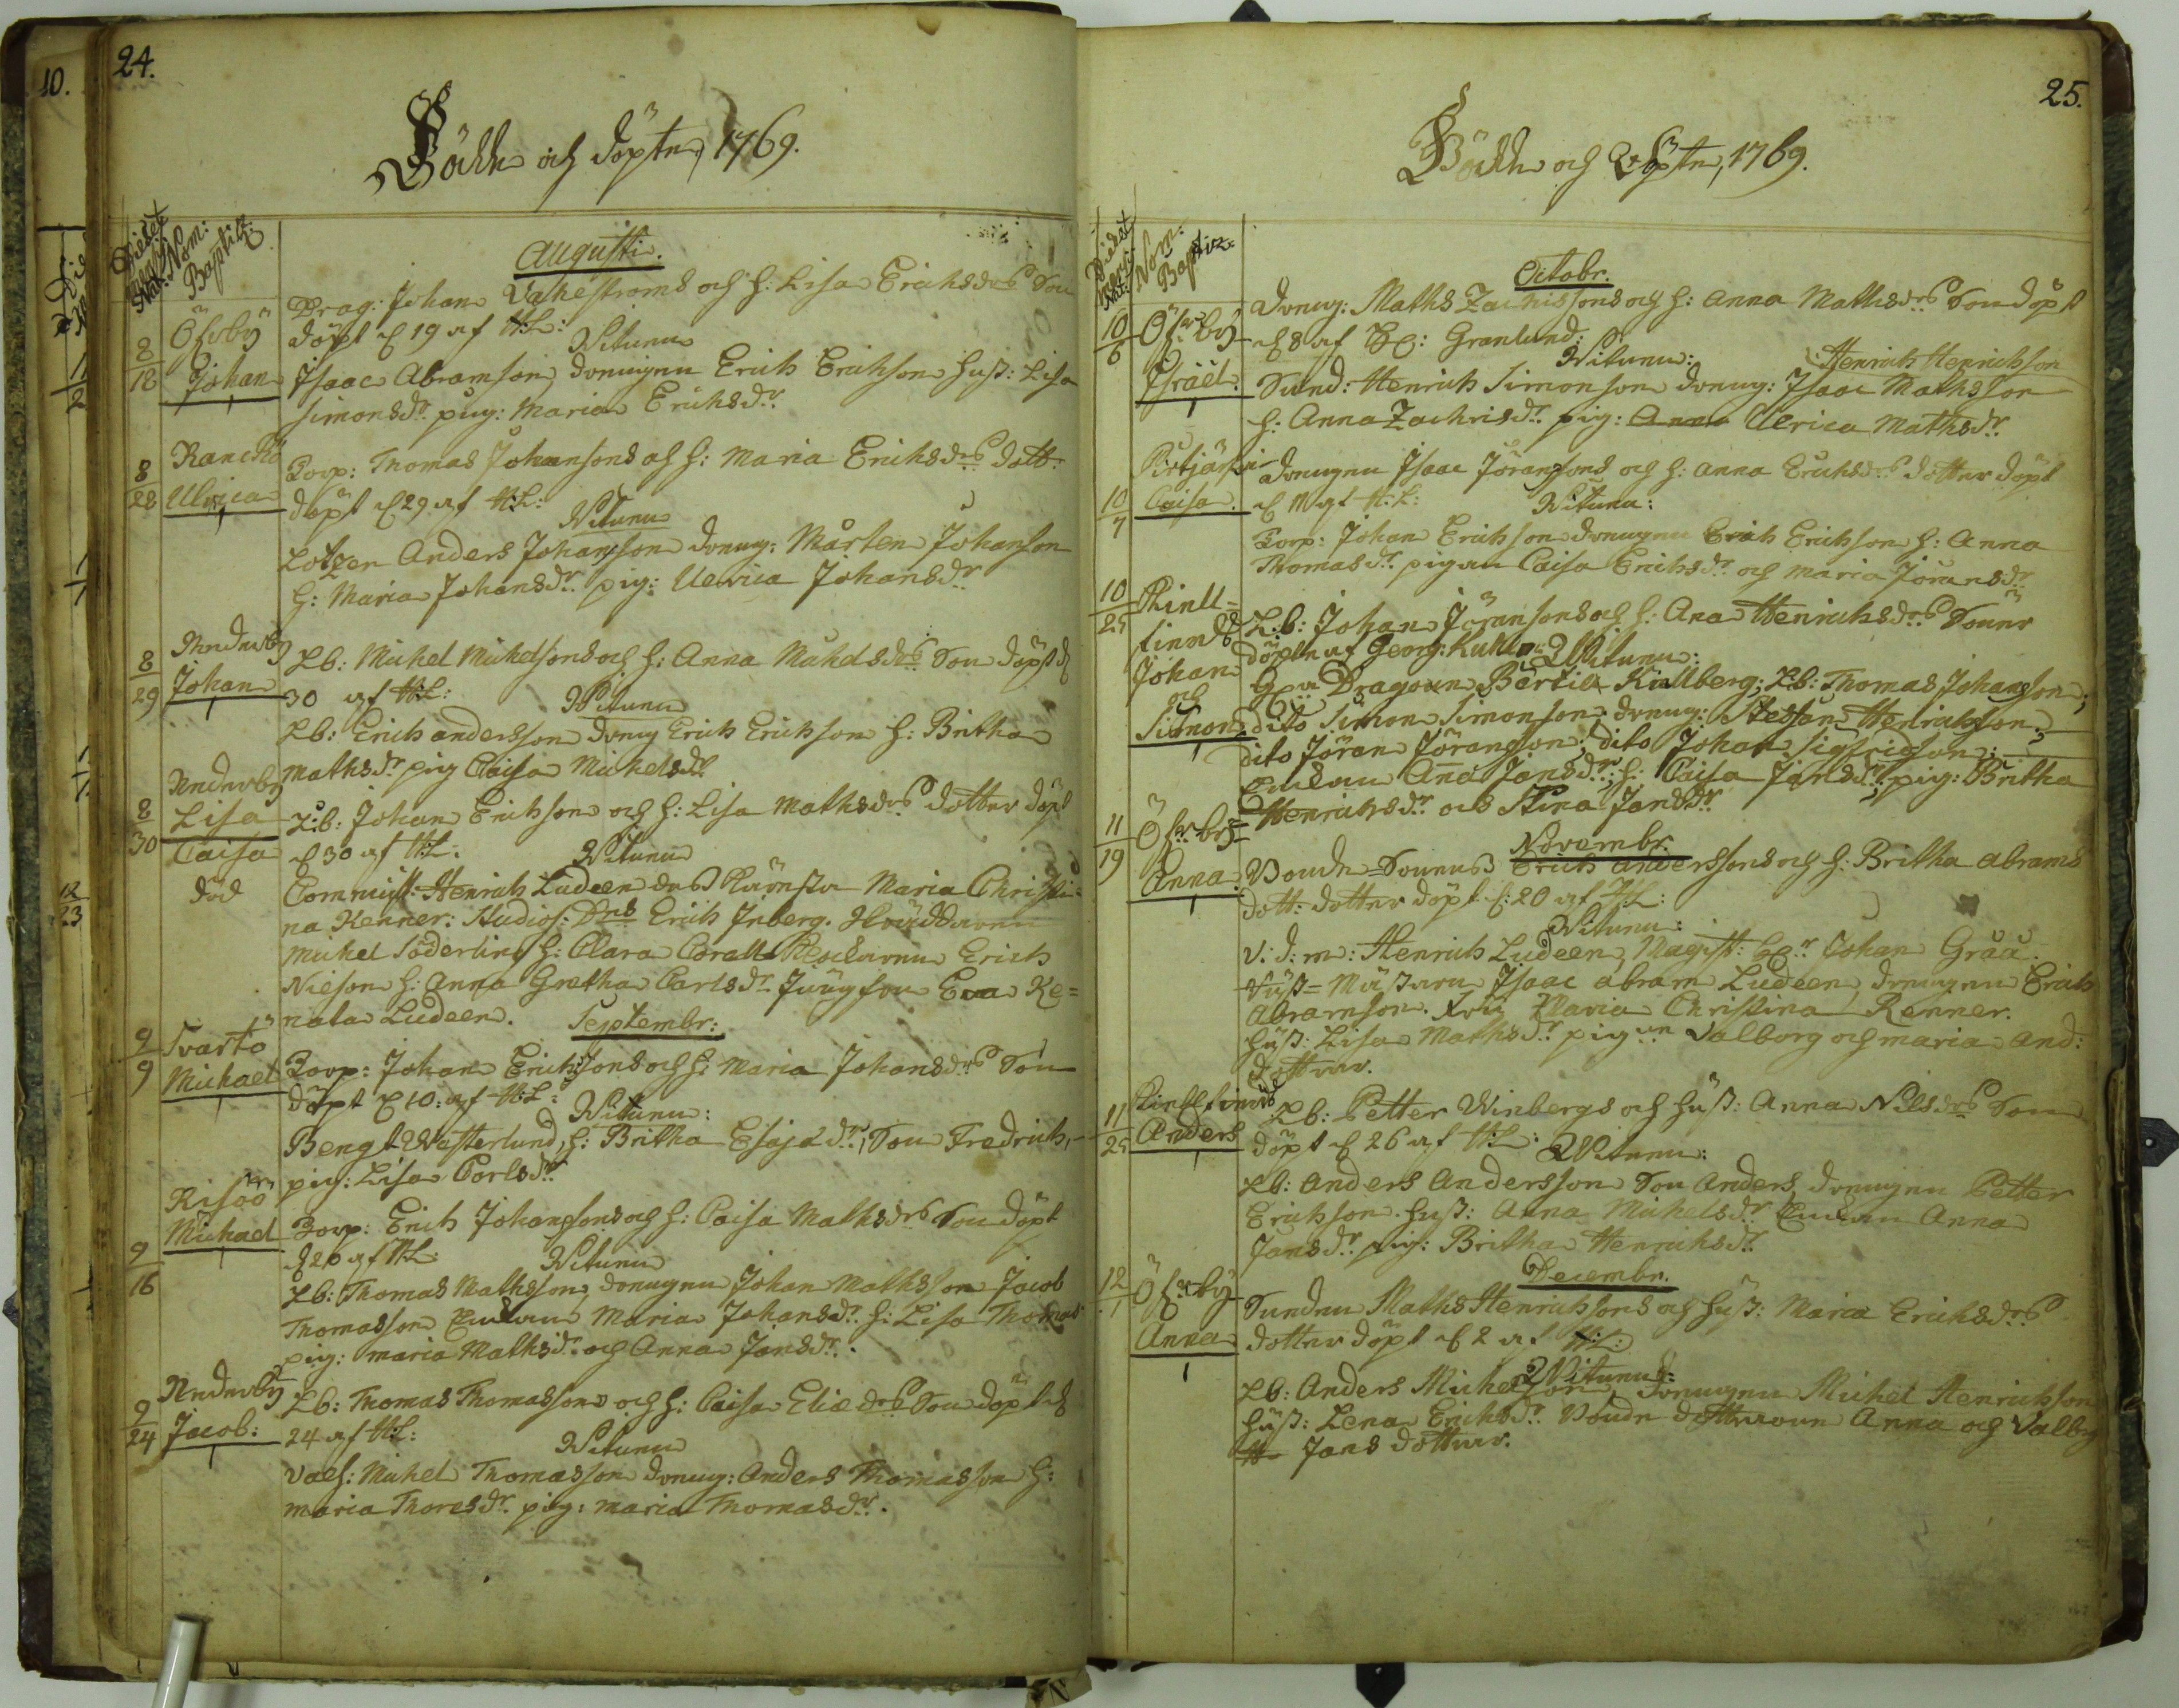 24.
Födde och döpte, 1769.
Dies et Mens: Nat: Nom: Baptiz:
Augusti.
8/18 Öfverby Johan
Drag: Johan Vakeströms och H: Lisa Erichsdrs Son
döpt d 19 af H:L:
Witnen
Isaac Abramson, drengen Erich Erichson hust: Lisa
Simonsdr. pig: Maria Erichsdr.
8/28 Ranckö Ulrica
Torp: Thomas Johansons och H: Maria Erichsdrs dott.
döpt d 29 af H:L:
Witnen
Lotzen Anders Johansson dreng: Mårten Johanson
H: Maria Johansdr. pig: Ulrica Johansdr
8/29 Nederby Johan
Lb: Michel Michelsons och H: Anna Michelsdrs Son döpt d
30 af H:L:
Witnen
Lb: Erich andersson dreng Erich Erichson H: Britha
Mathsdr pig Caisa Michelsdr
8/30 Nederby Lisa Caisa död
Lb: Johan Erichsons och H: Lisa Mathsdrs dotter döpt
d 30 af H:L:
Witnen
Comminist: Henrich Ludeen des Käresta Maria Christi-
na Renner: Studios: Dns Erich Inberg. Skräddaren
Michel Söderling H: Clara Corall Klockaren Erich
Nilson H: Anna Gretha Carlsdr Jungfrun Eva Re=
nata Ludeen.
Septembr:
9/9 Svartö Michael
Torp: Johan Erichsons och H: Maria Johansdrs Son
döpt d 10: af H:L:
Witnen:
Bengt Wästerlund, H: Britha Esajædr., Son Fredrich,
pig: Lisa Carlsdr
9/16 Risöö Michael
Torp: Erich Johansons och H: Caisa Mathsdrs Son döpt
d 20 af H:L:
Witnen
Lb: Thomas Mathsson, drengen Johan Mathsson Jacob
Thomasson Enkan Maria Johansdr. H: Lisa Thomas
pig: Maria Mathsdr. och Anna Jansdr.
9/24 Nederby Jacob:
Lb: Thomas Thomassons och H: Caisa Eliædrs Son döpt d
24 af H:L:
Witnen
Michel Thomasson dreng: Anders Thomasson H:
Maria Thoresdr. pig: Maria Thomasdr.
25.
Födde och Döpte, 1769.
Dies et Mens: Nat: Nom: Baptiz:
Octobr.
10/6 Öfverby Israël.
Dreng: Maths Zachrissons och H: Anna Mathsdrs Son döpt
d 8 af Hr: Granlund:
Witnen: Henrich Henrichson
Sund: Henrich Simonson dreng: Isaac Mathsson
H: Anna Zachrisdr. pig: Anna Ulrica Mathsdr
10/7 Pirtjärvi Caisa.
Drengen Isaac Jöransons och H: Anna Erichsdrs dotter döpt
d 11 af H:L:
Witnen:
Torp: Johan Erichson drengen Erich Erichson H: Anna
Thomasdr. pigan Caisa Erichsdr. och Maria Jöransdr.
10/25 Johan och Simon
L:b: Johan Jöransons och H: Ana Henrichsdrs Söner
döpte af Georg: Kuhlm: Witnen:
Dragoun Bärtil Killberg; Lb: Thomas Johansson;
dito Simon Simonson, dreng: Steffan Henrichson;
dito Jöran Jöransson; dito Johan Sigfrigson;
Enkan Anna Jansdr; H: Caisa Jansdr; pig: Britha
Henrichsdr. och Stina Jansdr.
Novembr.
11/19 Öfverby Anna
Erich Anderssons och H: Britha Abrams
dott: dotter döpt d: 20 af H:L:
Witnen:
V: d: m: Henrich Ludeen, Magist: Hr Johan Gråå.
Isaac Abram Ludeen, drengen Erich
Abramson. Fru Maria Christina Renner.
Hust: Lisa Mathsdr. pigan Valborg och Maria And:
döttrar.
11/25 Anders
Lb: Petter Winbergs och Hust: Anna Nilsdrs Son
döpt d 26 af H:L:
Witnen:
Lb: Anders Andersson Son Anders, drengen Petter
Erichson. Hust: Anna Michelsdr Enkan Anna
Jansdr. pig: Britha Henrichsdr.
Decembr.
12/1 Öfverby Anna
Sunden Maths Henrichsons och Hust: Maria Erichsdrs
dotter döpt d 2 af H:L:
Witnen:
Lb: Anders Michelson, drengen Michel Henrichson
Hust: Lena Erichsdr. döttrarne Anna och Valbg
Jans döttrar.
10.
12/23